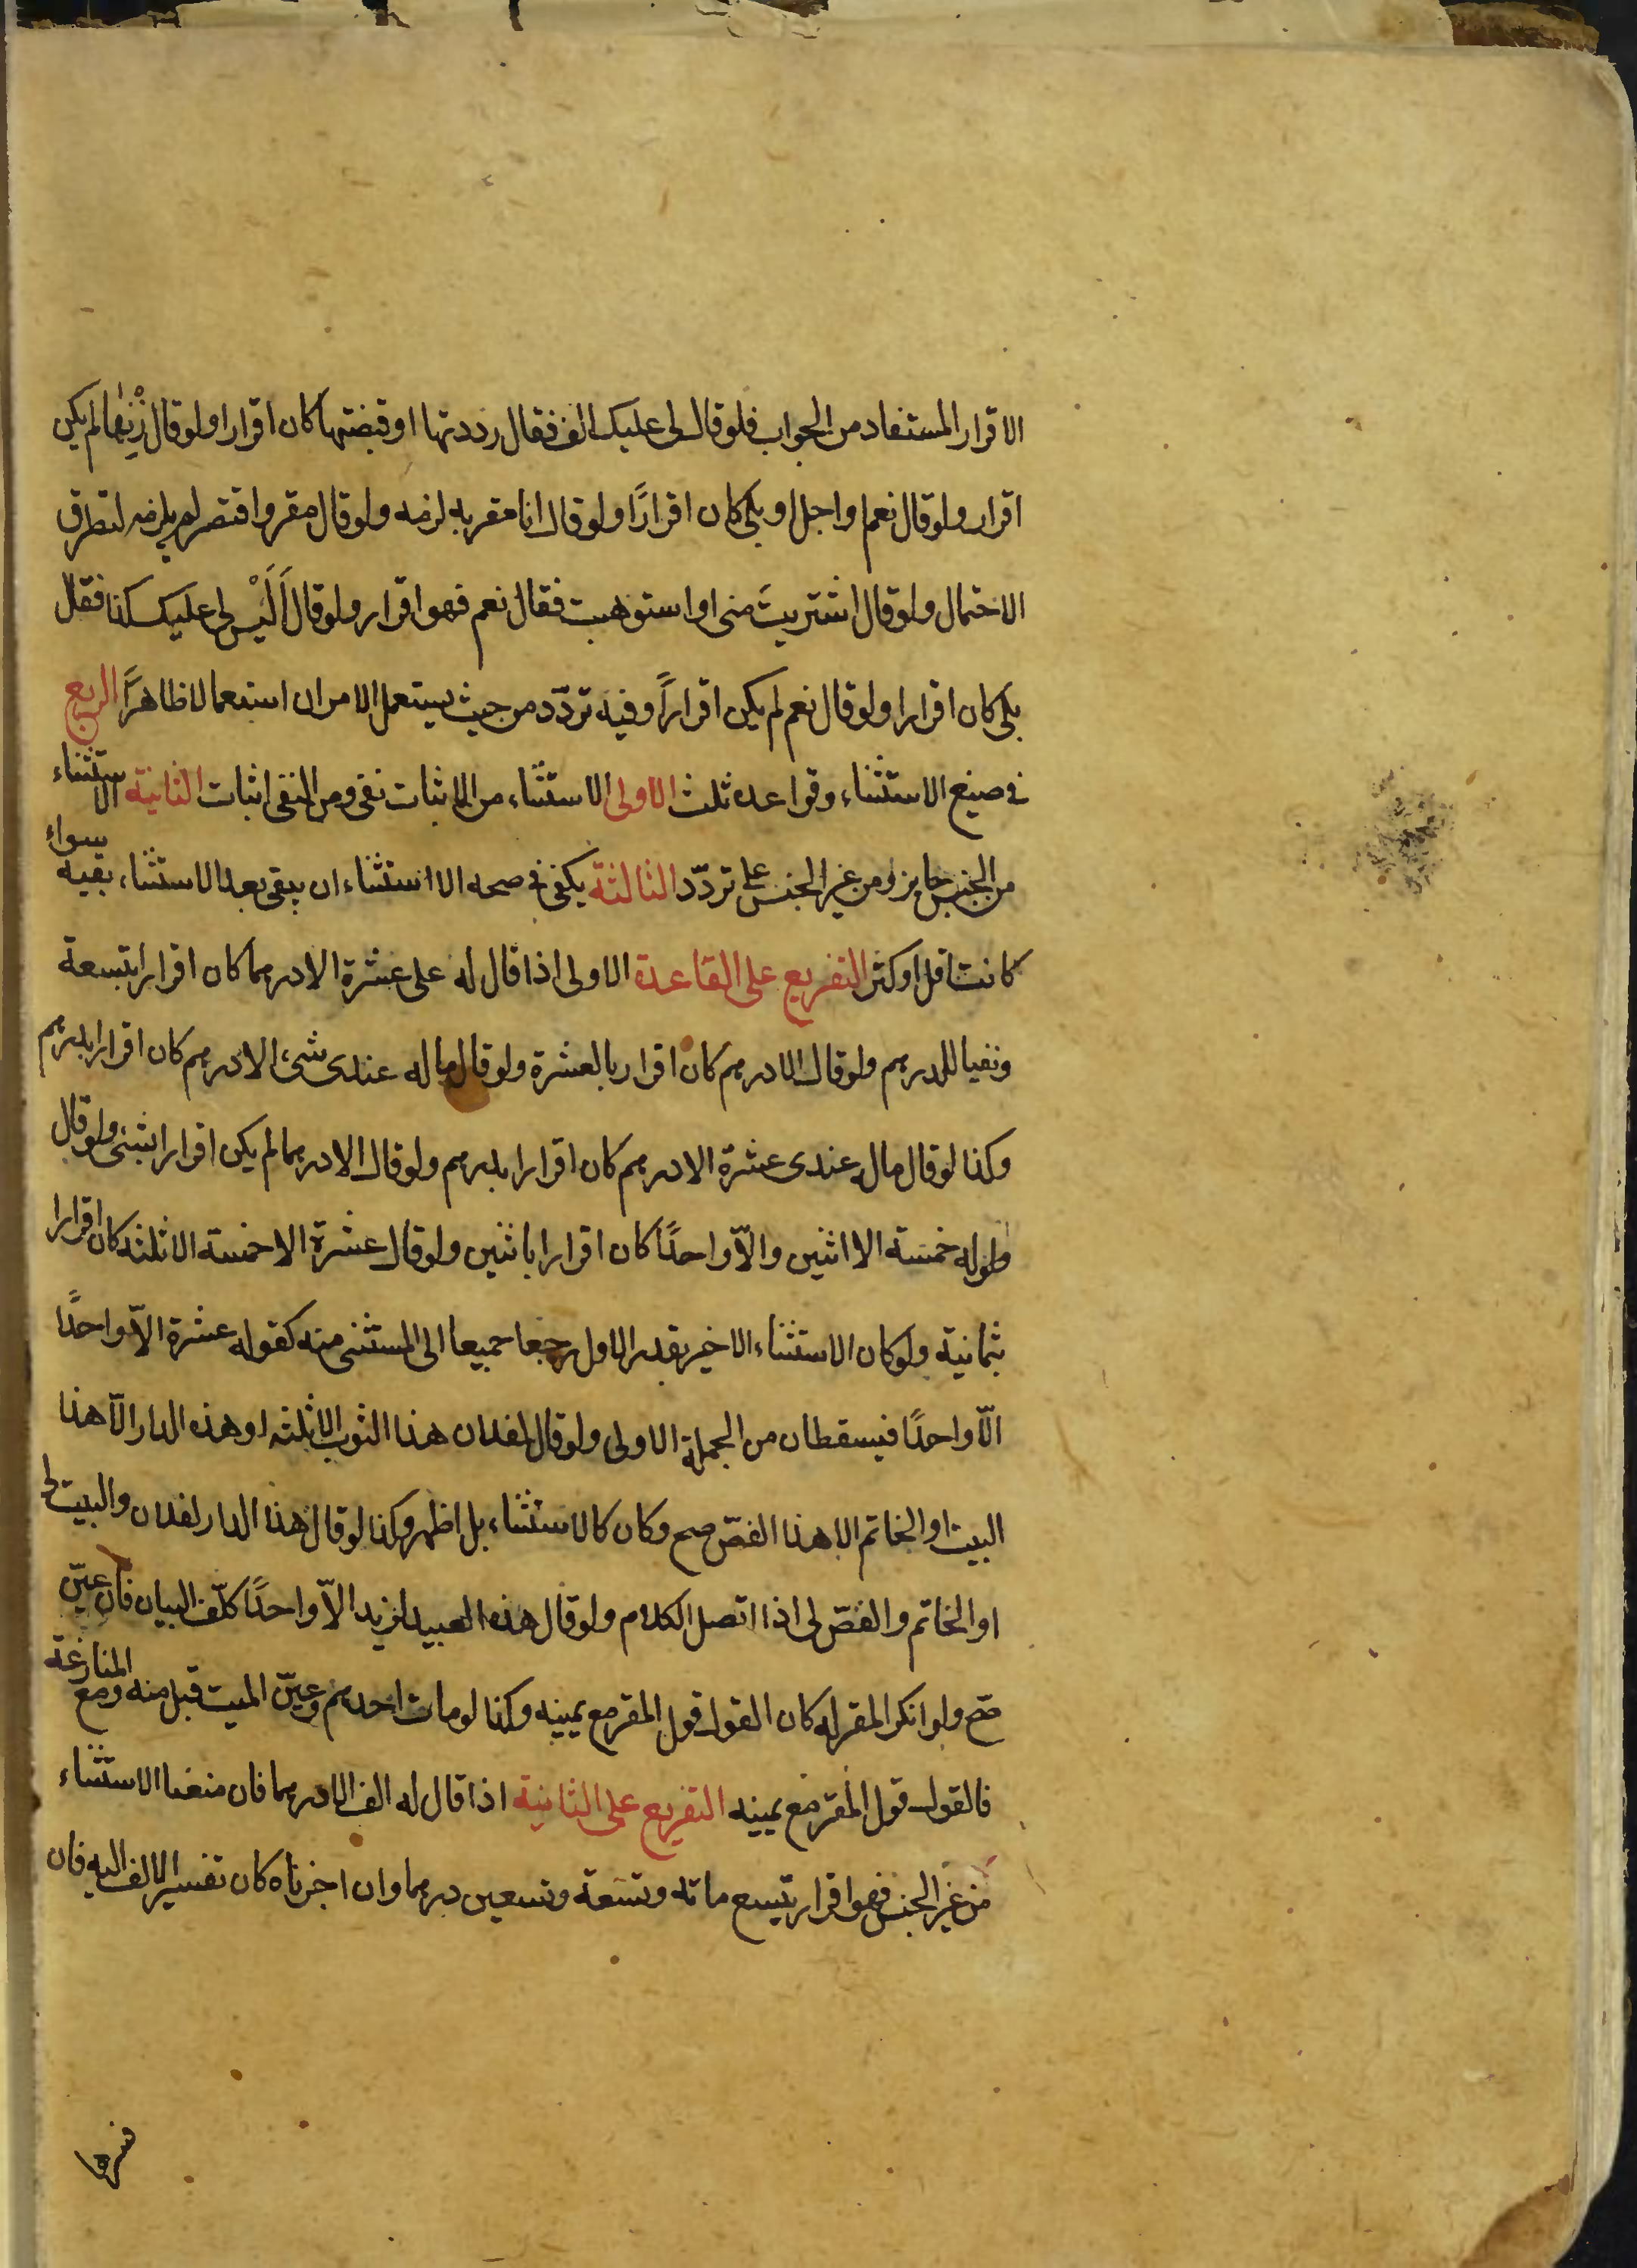 الاقرار المستفاد من الجواب فلو قال لى عليك الف فقال رددتها او قبضتها كان اقرارا ولو قال زنها لم يكن
اقرار ولو قال نعم او اجل او بلى كان اقرارًا ولو قال انا مقر به لزمه ولو قال مقر واقتصر لم يلزمه لتطرق
الاحتمال ولو قال اشتريتَ منى او استوهبت فقال نعم فهو اقرار ولو قال اَلَيْس لى عليك كذا فقال
بلى كان اقرارا ولو قال نعم لم يكن اقراراً وفيه تردّد من حيث يستعمل الامران استعمالا ظاهرًا الربع
فى صيغ الاستثناء وقواعده ثلث الاولى الاستثناء من الاثبات نفى ومن النفى اثبات الثانية الاستثناء
من الجنس جايز ومن غير الجنس على تردّد الثالثة يكفى فى صحه الاستثناء ان يبقى بعد الاستثناء بقيه سواء
كانت اقل او كثر التفريع على القاعدة الاولى اذا قال له على عشرة الا درهما كان اقرارا بتسعة
ونفيا للدرهم ولو قال الا درهم كان اقرار بالعشرة ولو قال ما له عندى شىء الا درهم كان اقرارا بدرهم
وكذا لو قال مال عندى عشرة الا درهم كان اقرارا بدرهم ولو قال الا درهما لم يكن اقرارا بشى ولو قال
له خمسة الا اثنين والاّ واحدًا كان اقرارا باثنين ولو قال عشرة الا خمسة الا ثلثه كان اقرارا
بثمانية ولو كان الاستثناء الاخير بقدر الاول رجعا جميعا الى المستثنى منه كقوله عشرة الاّ واحدًا
الاّ واحدًا فيسقطان من الجملة الاولى ولو قال لفلان هذا الثوب الا ثلثه او هذه الدار الاّ هذا
البيت او الخاتم الا هذا الفصّ صح وكان كالاستثناء بل اظهر وكذا لو قال هذا الدار لفلان والبيت لى
او الخاتم والفصّ لى اذا اتصل الكلام ولو قال هذه العبيد لزيد الاّ واحدًا كلّف البيان فان عيّن
صّح ولو انكر المقر له كان القول قول المقر مع يمينه وكذا لو مات احدهم وعيّن الميت قبل منه ومع المنازعة
فالقول قول المقر مع يمينه التفريع على الثانية اذا قال له الف الا درهما فان منعنا الاستثناء
من غير الجنس فهو اقرار بتسع مائه وتسعة وتسعين درهما وان اجزناه كان تفسير الالف اليه فان
فسرها